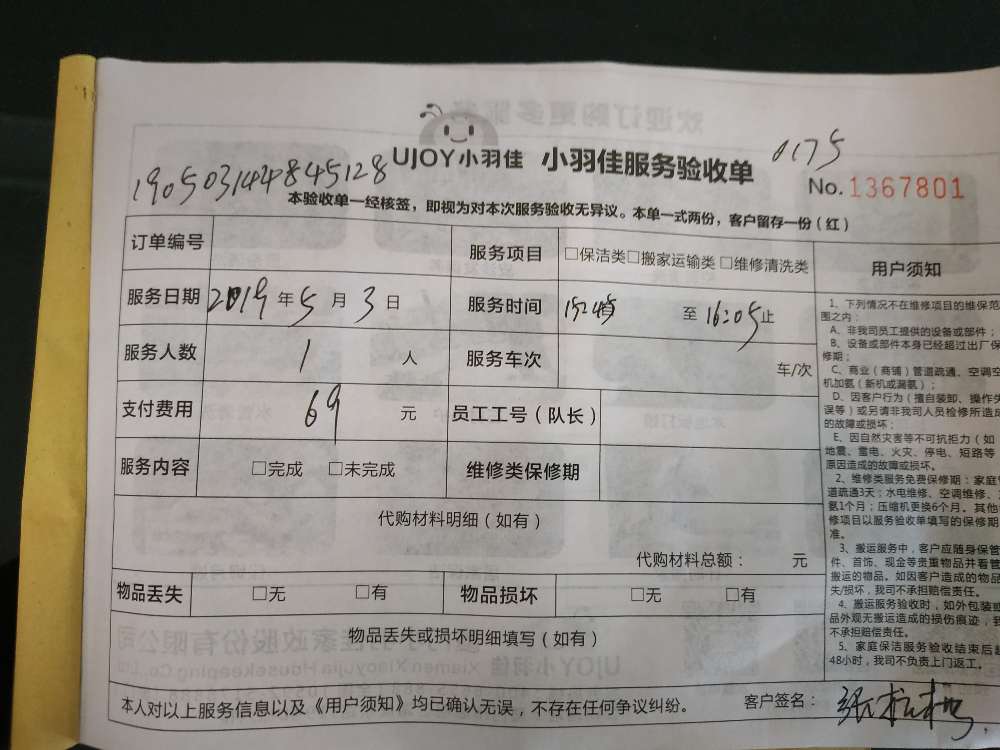 UJOY小羽佳 小羽佳服务验收单 0175
19050314484 5128
No.1367801
本验收单一经核签，即视为对本次服务验收无异议。本单一式两份，客户留存一份（红）
订单编号 服务项目 □保洁类□搬家运输类□维修清洗类
服务日期 2019年5月3日 服务时间 至16:05止
服务人数 1 人 服务车次 车/次
支付费用 69 元 员工工号（队长）
服务内容 □完成 □未完成 维修类保修期
代购材料明细（如有）
代购材料总额： 元
物品丢失 □无 □有 物品损坏 □无 □有
物品丢失或损坏明细填写（如有）
本人对以上服务信息以及《用户须知》均已确认无误，不存在任何争议纠纷。 客户签名：
用户须知
1、下列情况不在维修项目的维保范
围之内：
A、非我司员工提供的设备或部件；
B、设备或部件本身已经超过出厂保
修期；
C、商业（商铺）管道疏通、空调空
机加氨（新机或漏氨）；
D、因客户行为（擅自装卸、操作失
误等）或另请非我司人员检修所造成
的故障或损坏；
E、因自然灾害等不可抗拒力（如
地震、雷电、火灾、停电、短路等
原因造成的故障或损坏。
2、维修类服务免费保修期：家庭管
道疏通3天；水电维修、空调维修、
氨1个月；压缩机更换6个月。其他
修项目以服务验收单填写的保修期
准。
3、搬运服务中，客户应随身保管
件、首饰、现金等贵重物品并看管
搬运的物品。如因客户造成的物品
失/损坏，我司不承担赔偿责任。
4、搬运服务验收时，如外包装或
品外观无搬运造成的损伤痕迹，我
不承担赔偿责任。
5、家庭保洁服务验收结束后超
48小时，我司不负责上门返工。